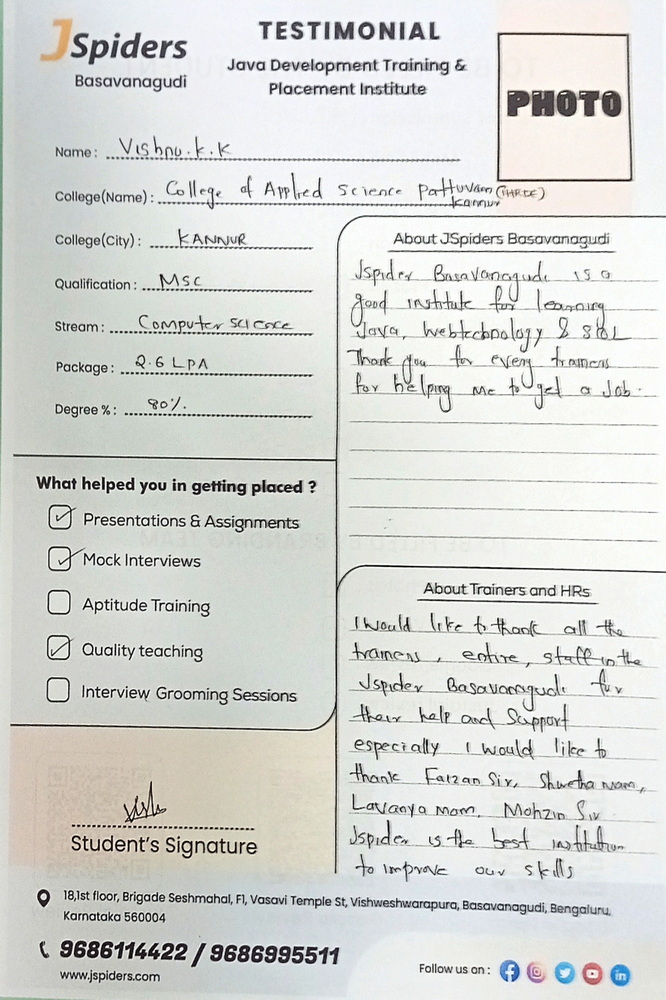 JSpiders
Basavanagudi
TESTIMONIAL
Java Development Training &
Placement Institute
PHOTO
Name : Vishnu.k.k
College(Name) : College of Applied Science Pattuvam (IHRDE)
Kannur
College(City) : KANNUR
Qualification : MSC
Stream : Computer science
Package : 2.6 LPA
Degree % : 80%.
What helped you in getting placed ?
Presentations & Assignments
Mock Interviews
Aptitude Training
Quality teaching
Interview Grooming Sessions
Student's Signature
About JSpiders Basavanagudi
Jspider Basavanagudi is a
good institute for learning
Java, Webtechnology & SQL
Thank you for every trainers
for helping me to get a Job.
About Trainers and HRs
I would like to thank all the
trainers, entire, staff in the
Jspider Basavanagudi for
their help and Support
especially I would like to
thank Faizan Sir, Shwetha mam,
Lavanya mam, Mohzin Sir
Jspider is the best institution
to improve our skills
18,1st floor, Brigade Seshmahal, F1, Vasavi Temple St, Vishweshwarapura, Basavanagudi, Bengaluru,
Karnataka 560004
9686114422 / 9686995511
www.jspiders.com
Follow us on :